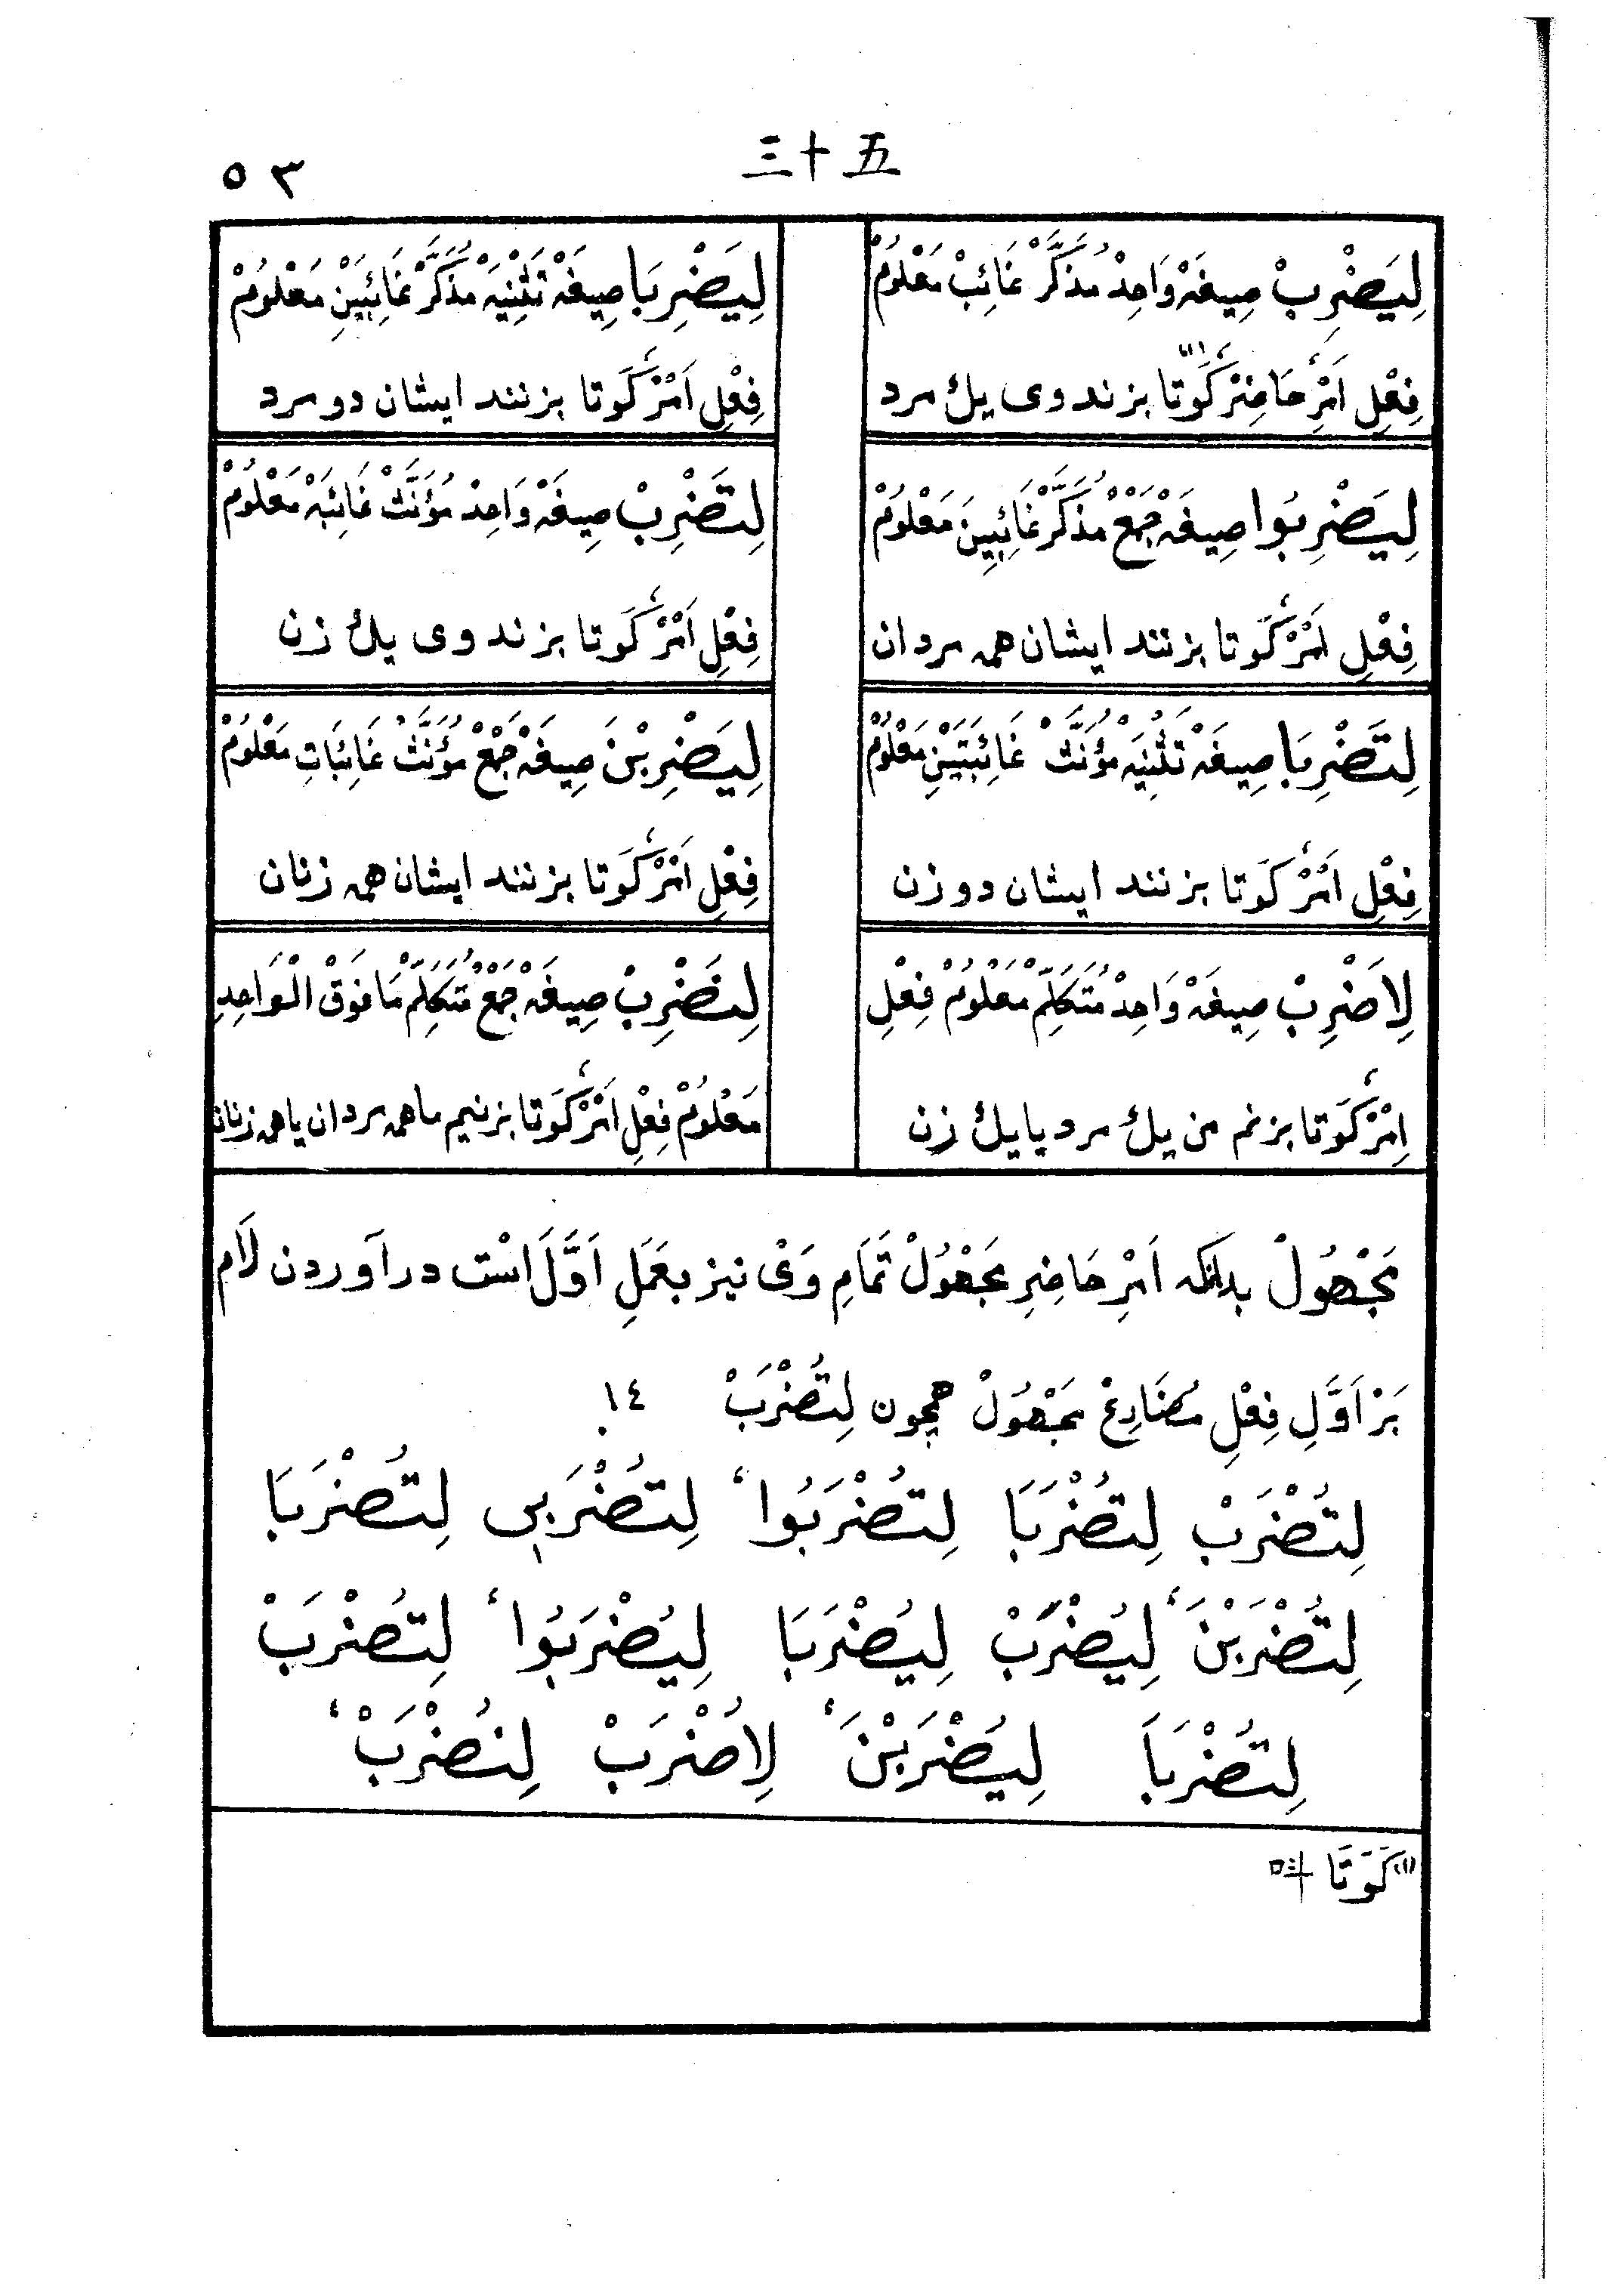 三十五
٥٣
لِيَضْرِبْ صِيغَهْ وَاحِدْ مُذَكَّرْ غَائِبْ مَعْلُومْ
فِعْلِ اَمْرِ حَاضِرْ كَوَتَا⁽¹⁾ بزند وی یك مرد
لِيَضْرِبَا صِيغَهْ تَثْنِيَهْ مُذَكَّرْ غَائِبَيْنِ مَعْلُومْ
فِعْلِ اَمْرْ كَوَتا بزنند ایشان دو مرد
لِيَضْرِبُوا صِيغَهْ جَمْعْ مُذَكَّرْ غَائِبِينَ مَعْلُومْ
فِعْلِ اَمْرْ كَوَتا بزنند ایشان همه مردان
لِتَضْرِبْ صِيغَهْ وَاحِدْ مُؤَنَّثْ غَائِبَهْ مَعْلُومْ
فِعْلِ اَمْرْ كَوَتا بزند وی یك زن
لِتَضْرِبَا صِيغَهْ تَثْنِيَهْ مُؤَنَّثْ غَائِبَتَيْنِ مَعْلُومْ
فِعْلِ اَمْرْ كَوَتا بزنند ایشان دو زن
لِيَضْرِبْنَ صِيغَهْ جَمْعْ مُؤَنَّثْ غَائِبَاتِ مَعْلُومْ
فِعْلِ اَمْرْ كَوَتا بزنند ایشان همه زنان
لِاَضْرِبْ صِيغَهْ وَاحِدْ مُتَكَلِّمْ مَعْلُومْ فِعْلِ
اَمْرْ كَوَتا بزنم من یك مرد یا یك زن
لِنَضْرِبْ صِيغَهْ جَمْعْ مُتَكَلِّمْ مَا فَوْقْ الْوَاحِدِ
مَعْلُومْ فِعْلِ اَمْرْ كَوَتا بزنیم ما همه مردان یا همه زنان
مَجْهُولْ بدانكه اَمْرِ حَاضِرِ مَجْهُولْ تَمَامِ وَیْ نیز بعَمَلِ اَوَّلَ اسْت در آوردن لَام
بَرْ اَوَّلِ فِعْلِ مُضَارِعْ مَجْهُولْ همچون لِتُضْرَبْ ١٤
لِتُضْرَبْ لِتُضْرَبَا لِتُضْرَبُوا، لِتُضْرَبِي لِتُضْرَبَا
لِتُضْرَبْنَ، لِيُضْرَبْ لِيُضْرَبَا لِيُضْرَبُوا، لِتُضْرَبْ
لِتُضْرَبَا لِيُضْرَبْنَ، لِاُضْرَبْ لِنُضْرَبْ،
(١) كَوَتَا